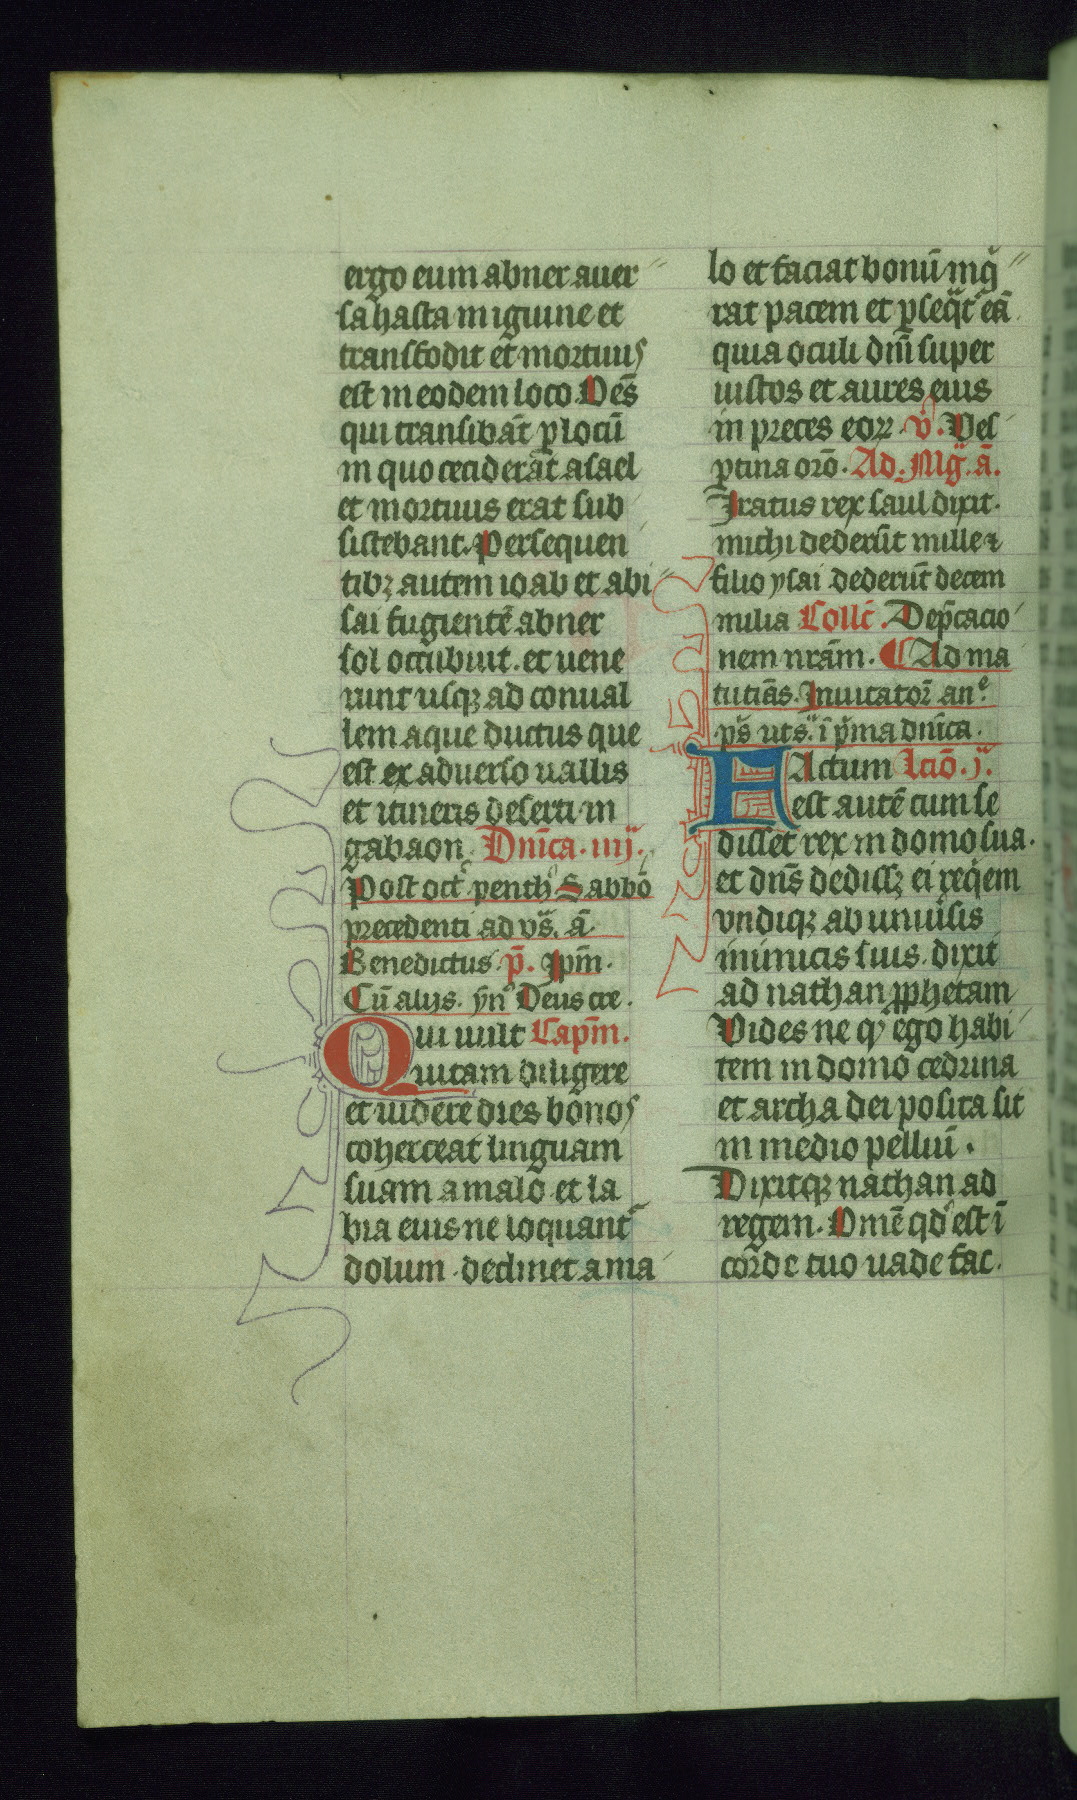 ergo eum abner auer
sa hasta in iguine et
transfodit et mortuus
est in eodem loco. Oēs
qui transibāt p locū
in quo ceciderāt asael
et mortuus erat sub
sistebant. Persequen
tibꝫ autem ioab et abi
sai fugientē abner
sol occubuit. et uene
runt usqꝫ ad conual
lem aque ductus que
est ex aduerso uallis
et itineris deserti in
gabaon. Dnīca. iiij.
Post oct̄ penth Sabbo
precedenti ad vs̄. ā
Benedictus. p̄. Ipm̄.
Cū alijs. yn̄ Deus cre.
Qui uult Capm̄.
uitam diligere
et uidere dies bonos
coherceat linguam
suam a malo et la
bia eius ne loquant
dolum. declinet a ma
lo et faciat bonū inq̄
rat pacem et ꝑseq̄t eā
quia oculi dn̄i super
iustos et aures eius
in preces eoꝝ. v̄. Ves
ꝑtina orō. Ad. Mḡ. ā.
Iratus rex saul dixit.
michi dederūt mille ⁊
filio ysai dederūt decem
milia Coll̄c. Dep̄cacio
nem nrām. Ad ma
tutiās. Inuitatoꝝ an͛
ps̄ ut s̄. ī p̄ma dnīca.
FActum Lcio. j.
est autē cum se
disset rex in domo sua.
et dn̄s dedissꝫ ei reqͥem
vndiqꝫ ab uniuͥsis
inimicis suis. dixit
ad nathan ꝓphetam
Vides ne qͩ ego habi
tem in domo cedrina
et archa dei posita sit
in medio pelliū.
Dixitqꝫ nathan ad
regem. Omē qd̄ est ī
corde tuo uade fac.